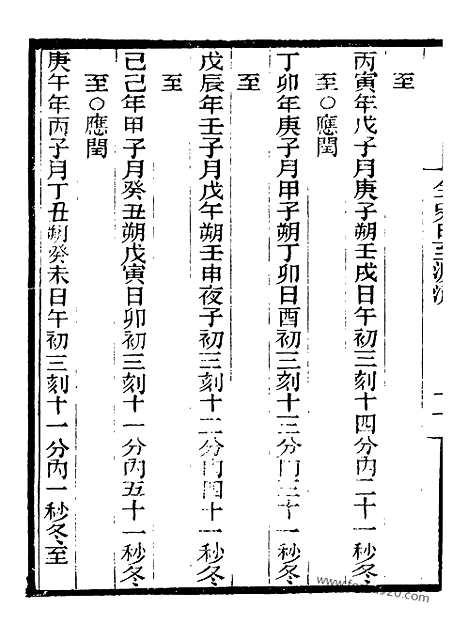 至
丙寅年戊子月庚子朔壬戌日午初三刻十四分內二十一秒冬
至○應閏
丁卯年庚子月甲子朔丁卯日酉初三刻十三分內三十一秒冬
至
戊辰年壬子月戊午朔壬申夜子初三刻十二分內四十一秒冬
至
己巳年甲子月癸丑朔戊寅日卯初三刻十一分內五十一秒冬
至○應閏
庚午年丙子月丁丑朔癸未日午初三刻十一分內一秒冬至